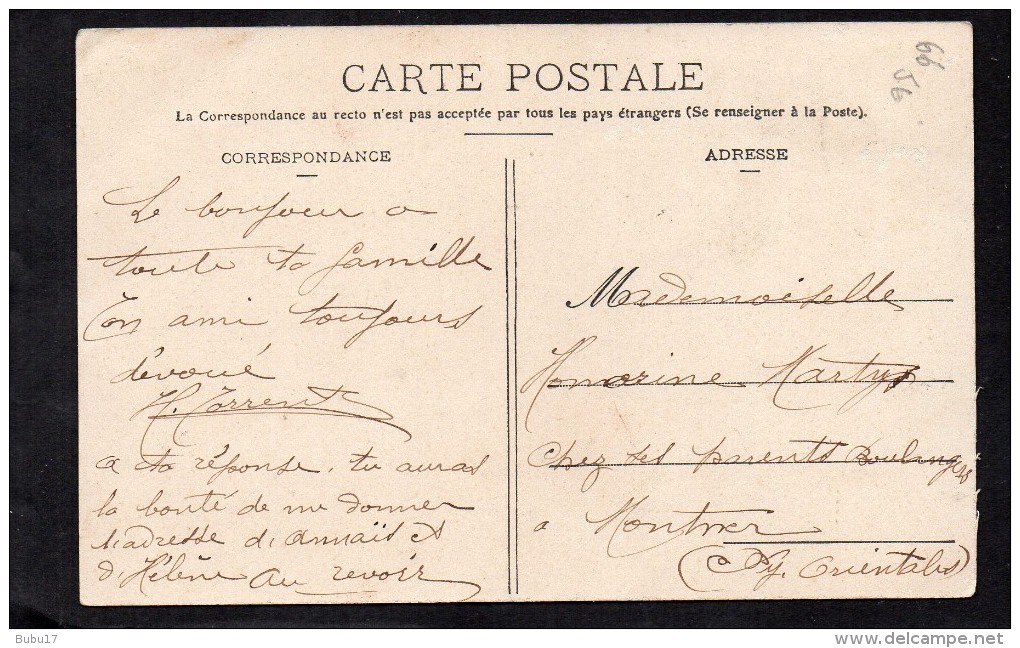 CARTE POSTALE
La Correspondance au recto n'est pas acceptée par tous les pays étrangers (Se renseigner à la Poste).
CORRESPONDANCE
Le bonjour a
toute ta famille
Ton ami toujours
dévoué
H. Torrent
a ta réponse, tu auras
la bonté de me donner
l'adresse d'Annaïs et
d'Hélène au revoir
ADRESSE
Mademoiselle
Honorine Martys
Chez ses parents Boulangers
a Montner
(Py. Orientales)
66
56
Bubu17
www.delcampe.net